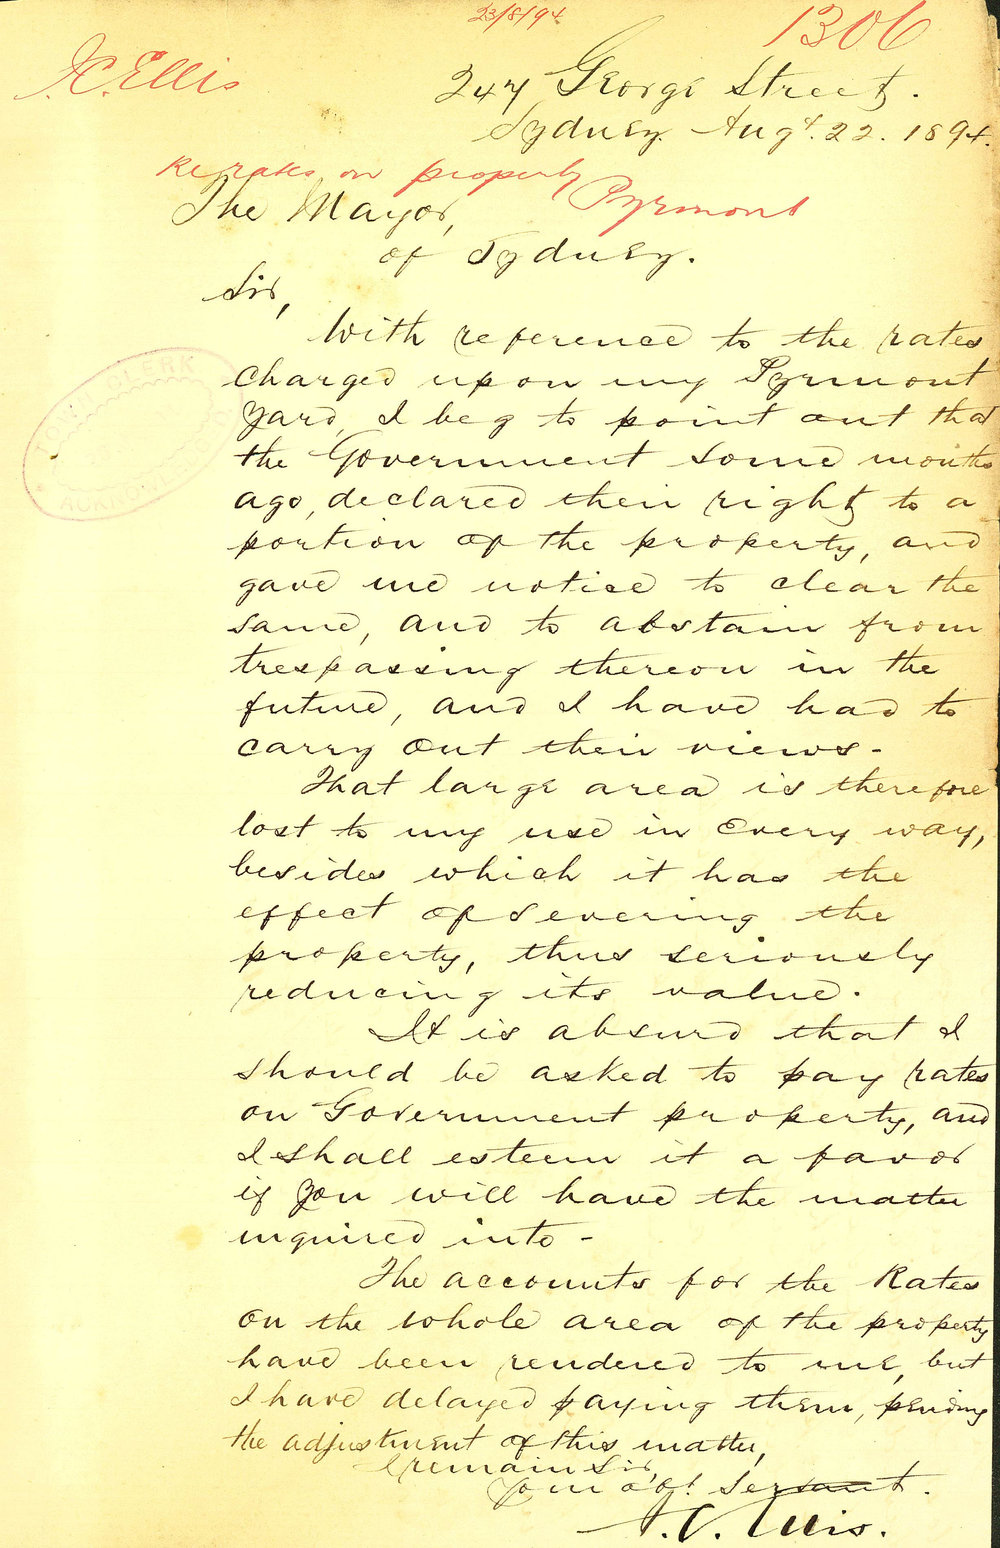 23/8/94.
1306
J.C. Ellis
247 George Street.
Sydney. Augt. 22. 1894.
Re rates on property
Pyrmont
The Mayor,
of Sydney.
Sir,
With reference to the rates
charged upon my Pyrmont
Yard, I beg to point out that
the Government some months
ago, declared their right to a
portion of the property, and
gave me notice to clear the
same, and to abstain from
trespassing thereon in the
future, and I have had to
carry out their views -
That large area is therefore
lost to my use in every way,
besides which it has the
effect of severing the
property, thus seriously
reducing its value.
It is absurd that I
should be asked to pay rates
on Government property, and
I shall esteem it a favor
if you will have the matter
inquired into -
The accounts for the Rates
on the whole area of the property
have been rendered to me, but
I have delayed paying them, pending
the adjustment of this matter,
I remain Sir,
Your obt. Servant.
J. C. Ellis.
TOWN CLERK
ACKNOWLEDGED